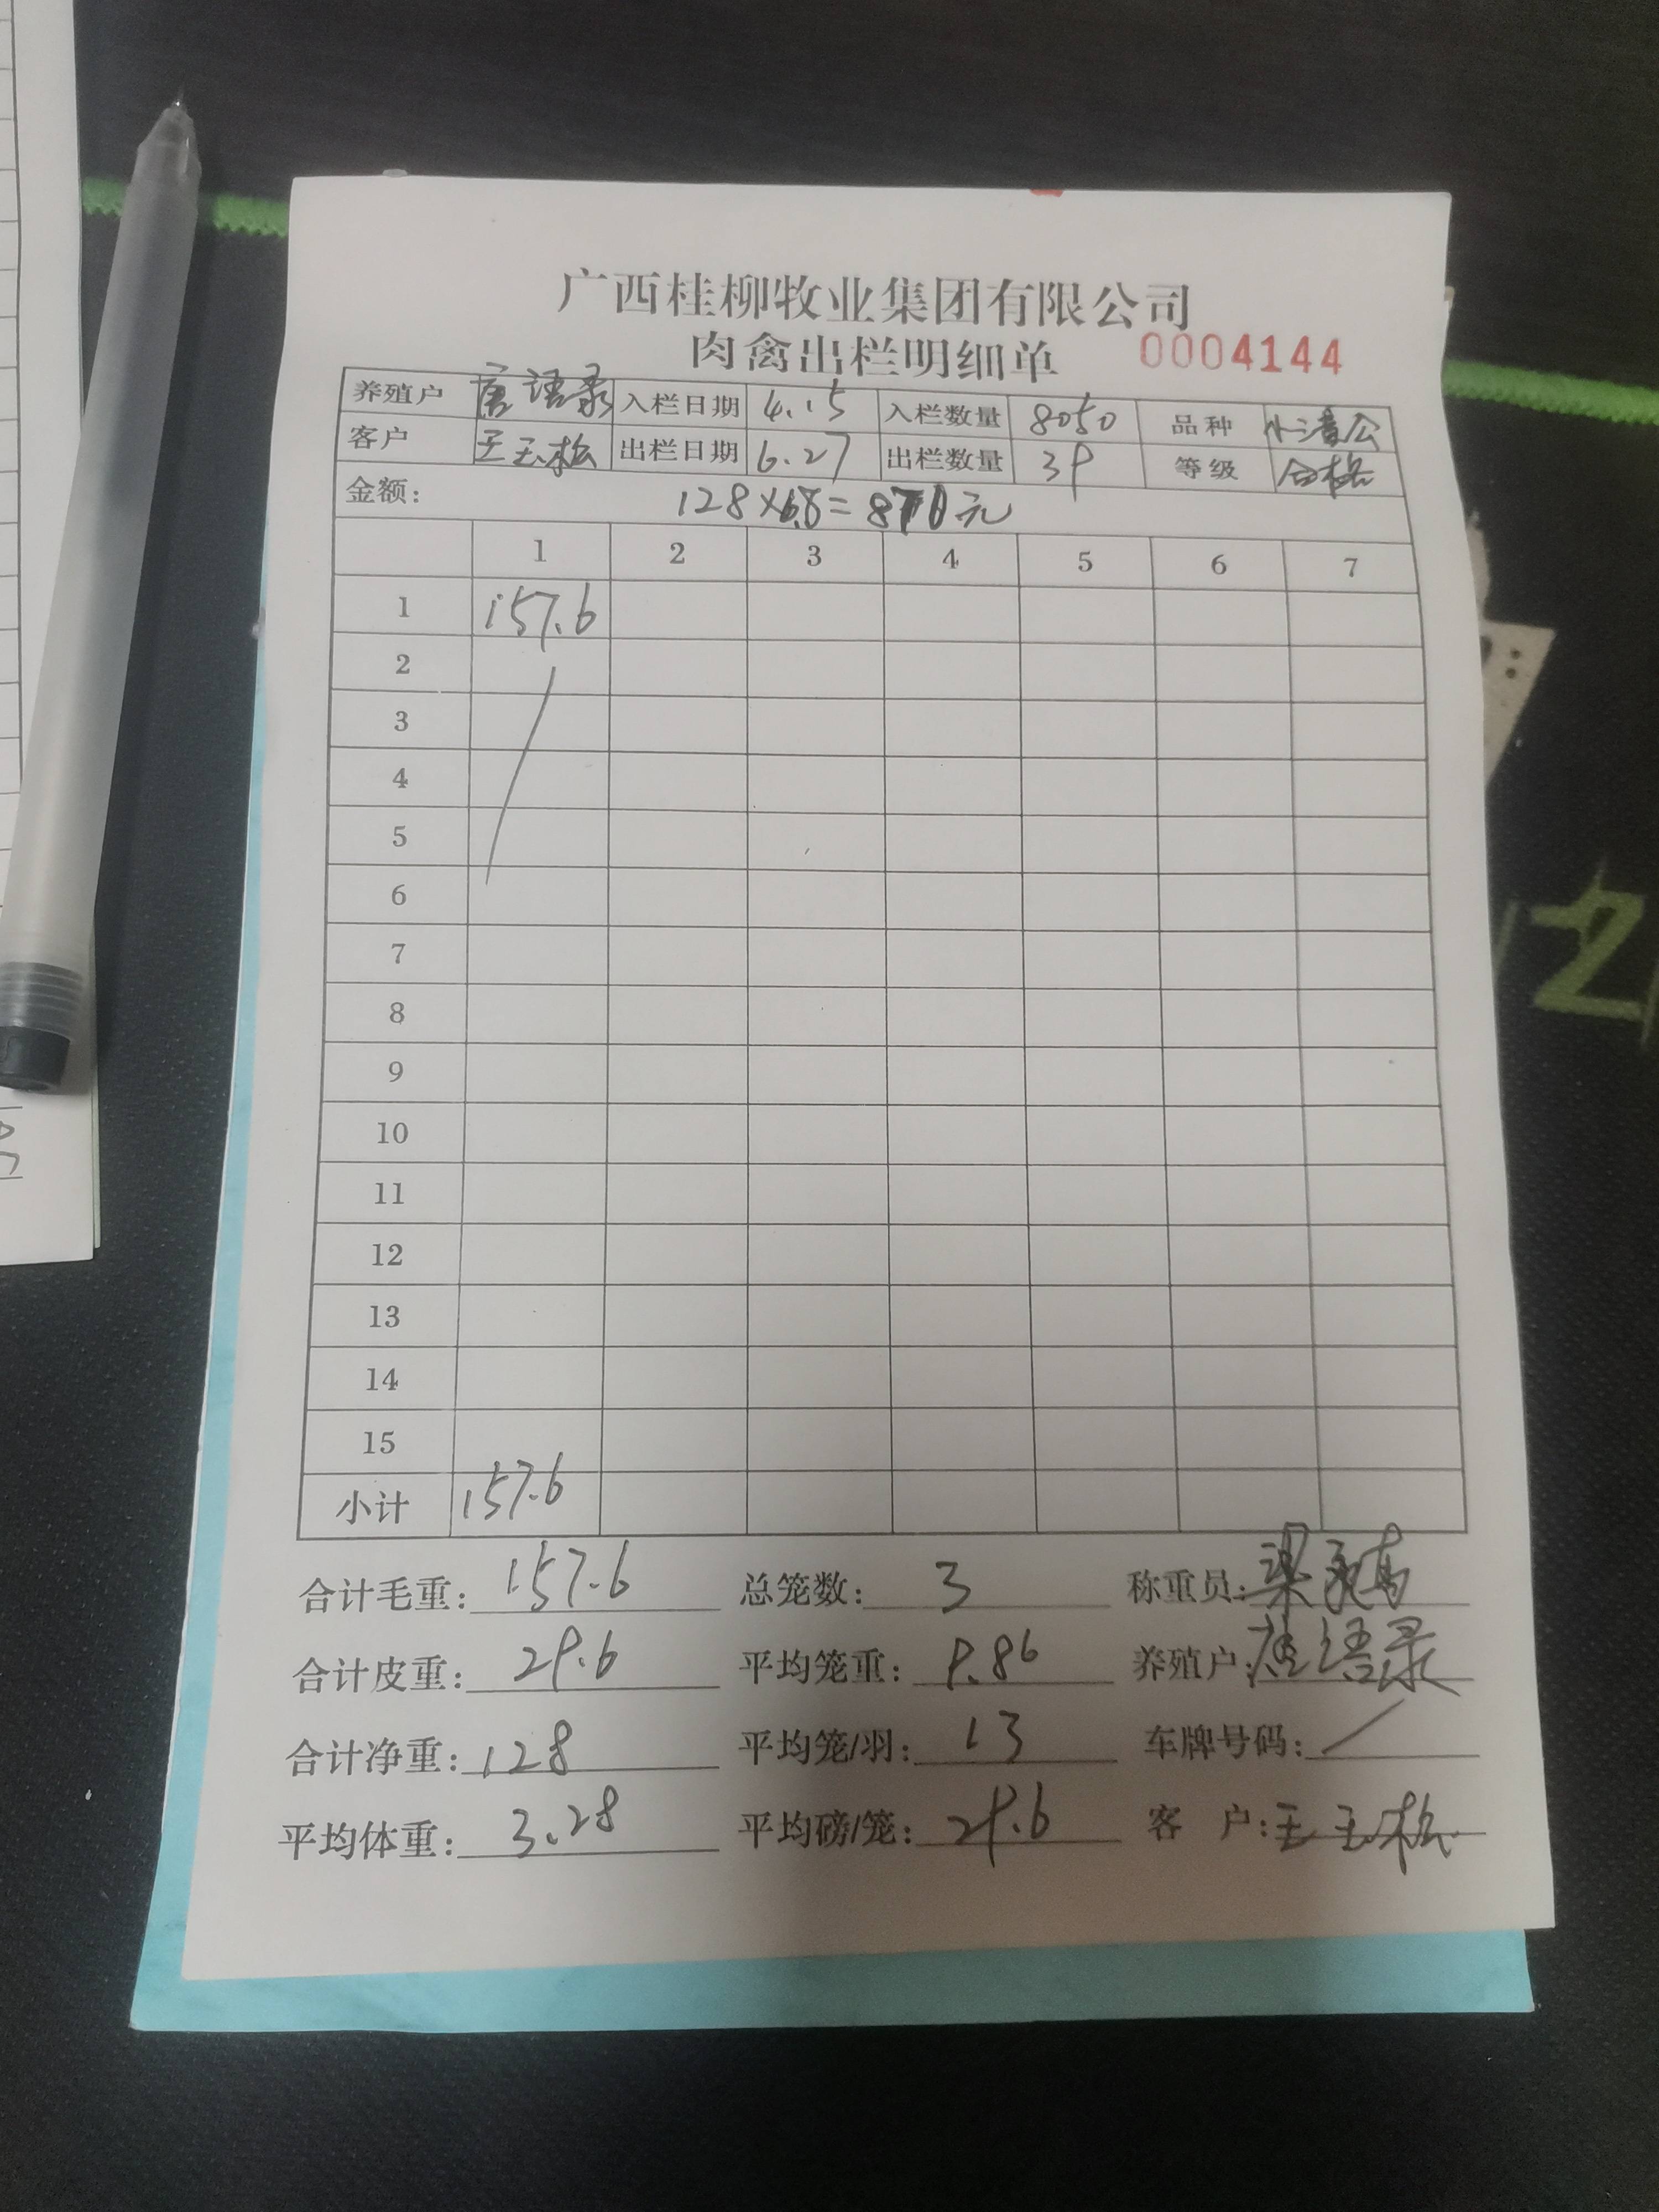 广西桂柳牧业集团有限公司
肉禽出栏明细单 0004144
养殖户 唐语录 入栏日期 4.15 入栏数量 8050 品种
客户 王玉松 出栏日期 6.27 出栏数量 39 等级 合格
金额: 128×6.8=870元
1 2 3 4 5 6 7
1 157.6
2
3
4
5
6
7
8
9
10
11
12
13
14
15
小计 157.6
合计毛重: 157.6 总笼数: 3 称重员:
合计皮重: 29.6 平均笼重: 9.86 养殖户: 唐语录
合计净重: 128 平均笼/羽: 13 车牌号码: /
平均体重: 3.28 平均磅/笼: 29.6 客 户: 王玉松